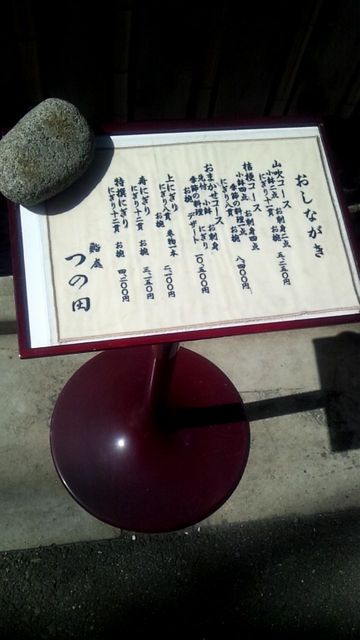 おしながき
山吹コース お刺身二点
小鉢二点 お椀
にぎり十一貫 五、二五〇円
桔梗コース お刺身四点
小鉢四点 お椀
季節の料理一点
にぎり八貫 八、四〇〇円
おまかせコース お刺身
先付 小鉢 にぎり
季節の料理 デザート
お椀 一〇、五〇〇円
上にぎり 巻物一本
にぎり八貫 お椀 二、一〇〇円
寿にぎり
にぎり十二貫 お椀 三、一五〇円
特撰にぎり
にぎり十二貫 お椀 四、二〇〇円
鮨屋
つの田